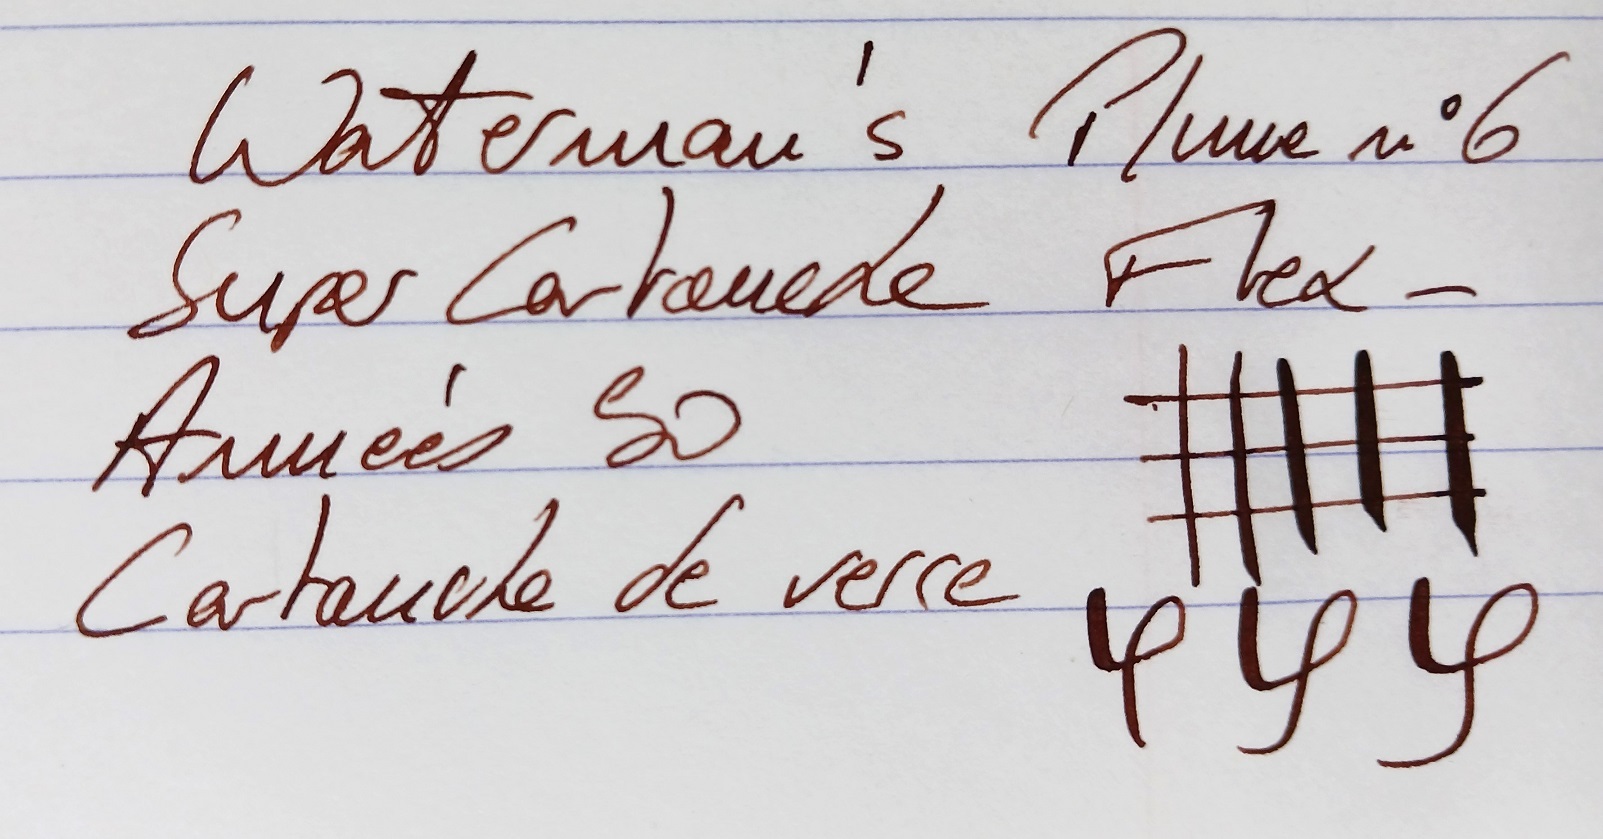 Waterman's Plume n°6
Super Cartouche Flex -
Années 50
Cartouche de verre
φ φ φ